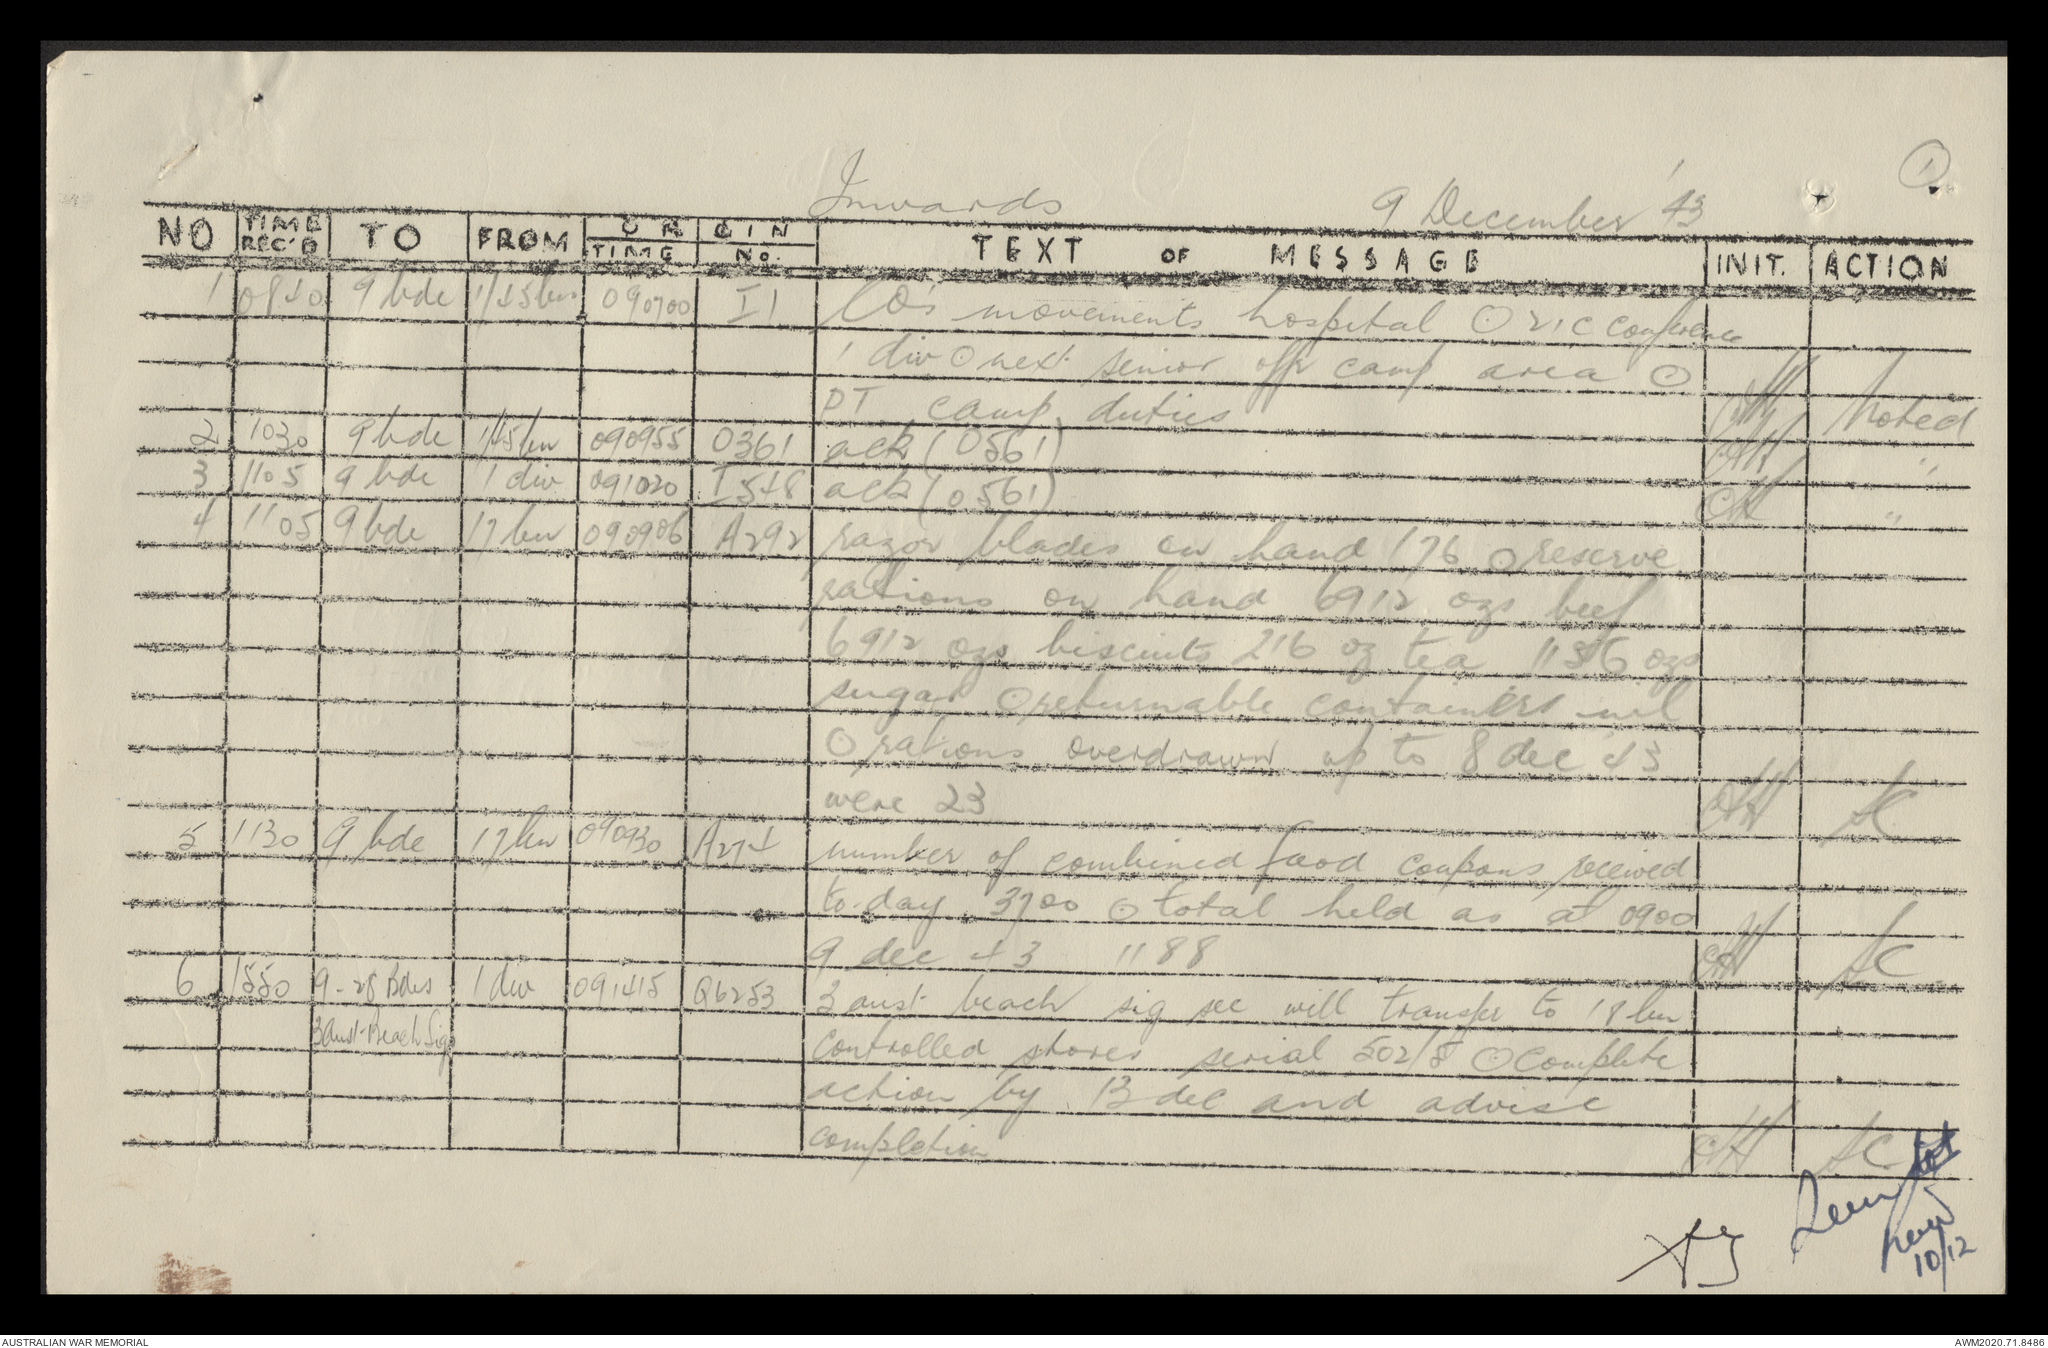 1
Inwards 9 December '43
NO TIME REC'D TO FROM OR TIME GIN No. TEXT OF MESSAGE INIT. ACTION
1 0840 9 bde 1/45 bn 090700 I1 COs movements hospital ⊙ 2ic conference
1 div ⊙ next senior offr camp area ⊙
PT camp duties Noted
2 1030 9 bde 1/45 bn 090955 0361 ack (0561) "
3 1105 9 bde 1 div 091020 I548 ack (0561) "
4 1105 9 bde 17 bn 090906 A292 razor blades on hand 176 ⊙ reserve
rations on hand 6912 ozs beef
6912 ozs biscuits 216 oz tea ozs
sugar ⊙ returnable containers nil
⊙ rations overdrawn up to 8 dec 43
were 23 SC
5 1130 9 bde 17 bn 090930 number of combined food coupons received
to-day 3700 ⊙ total held as at 0900
9 dec 43 1188 SC
6 1550 9-28 Bdes 1 div 091415 Q6253 3 aust beach sig sec will transfer to 18 bn
3 Aust Beach Sigs controlled stores serial 502/8 ⊙ complete
action by 13 dec and advise
completion SC
10/12
AUSTRALIAN WAR MEMORIAL AWM2020.71.8486